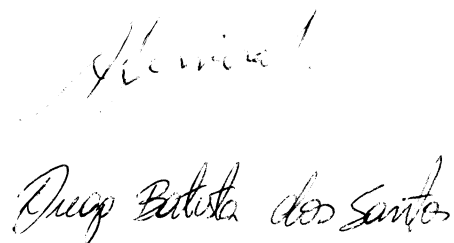 Diego Batista dos Santos